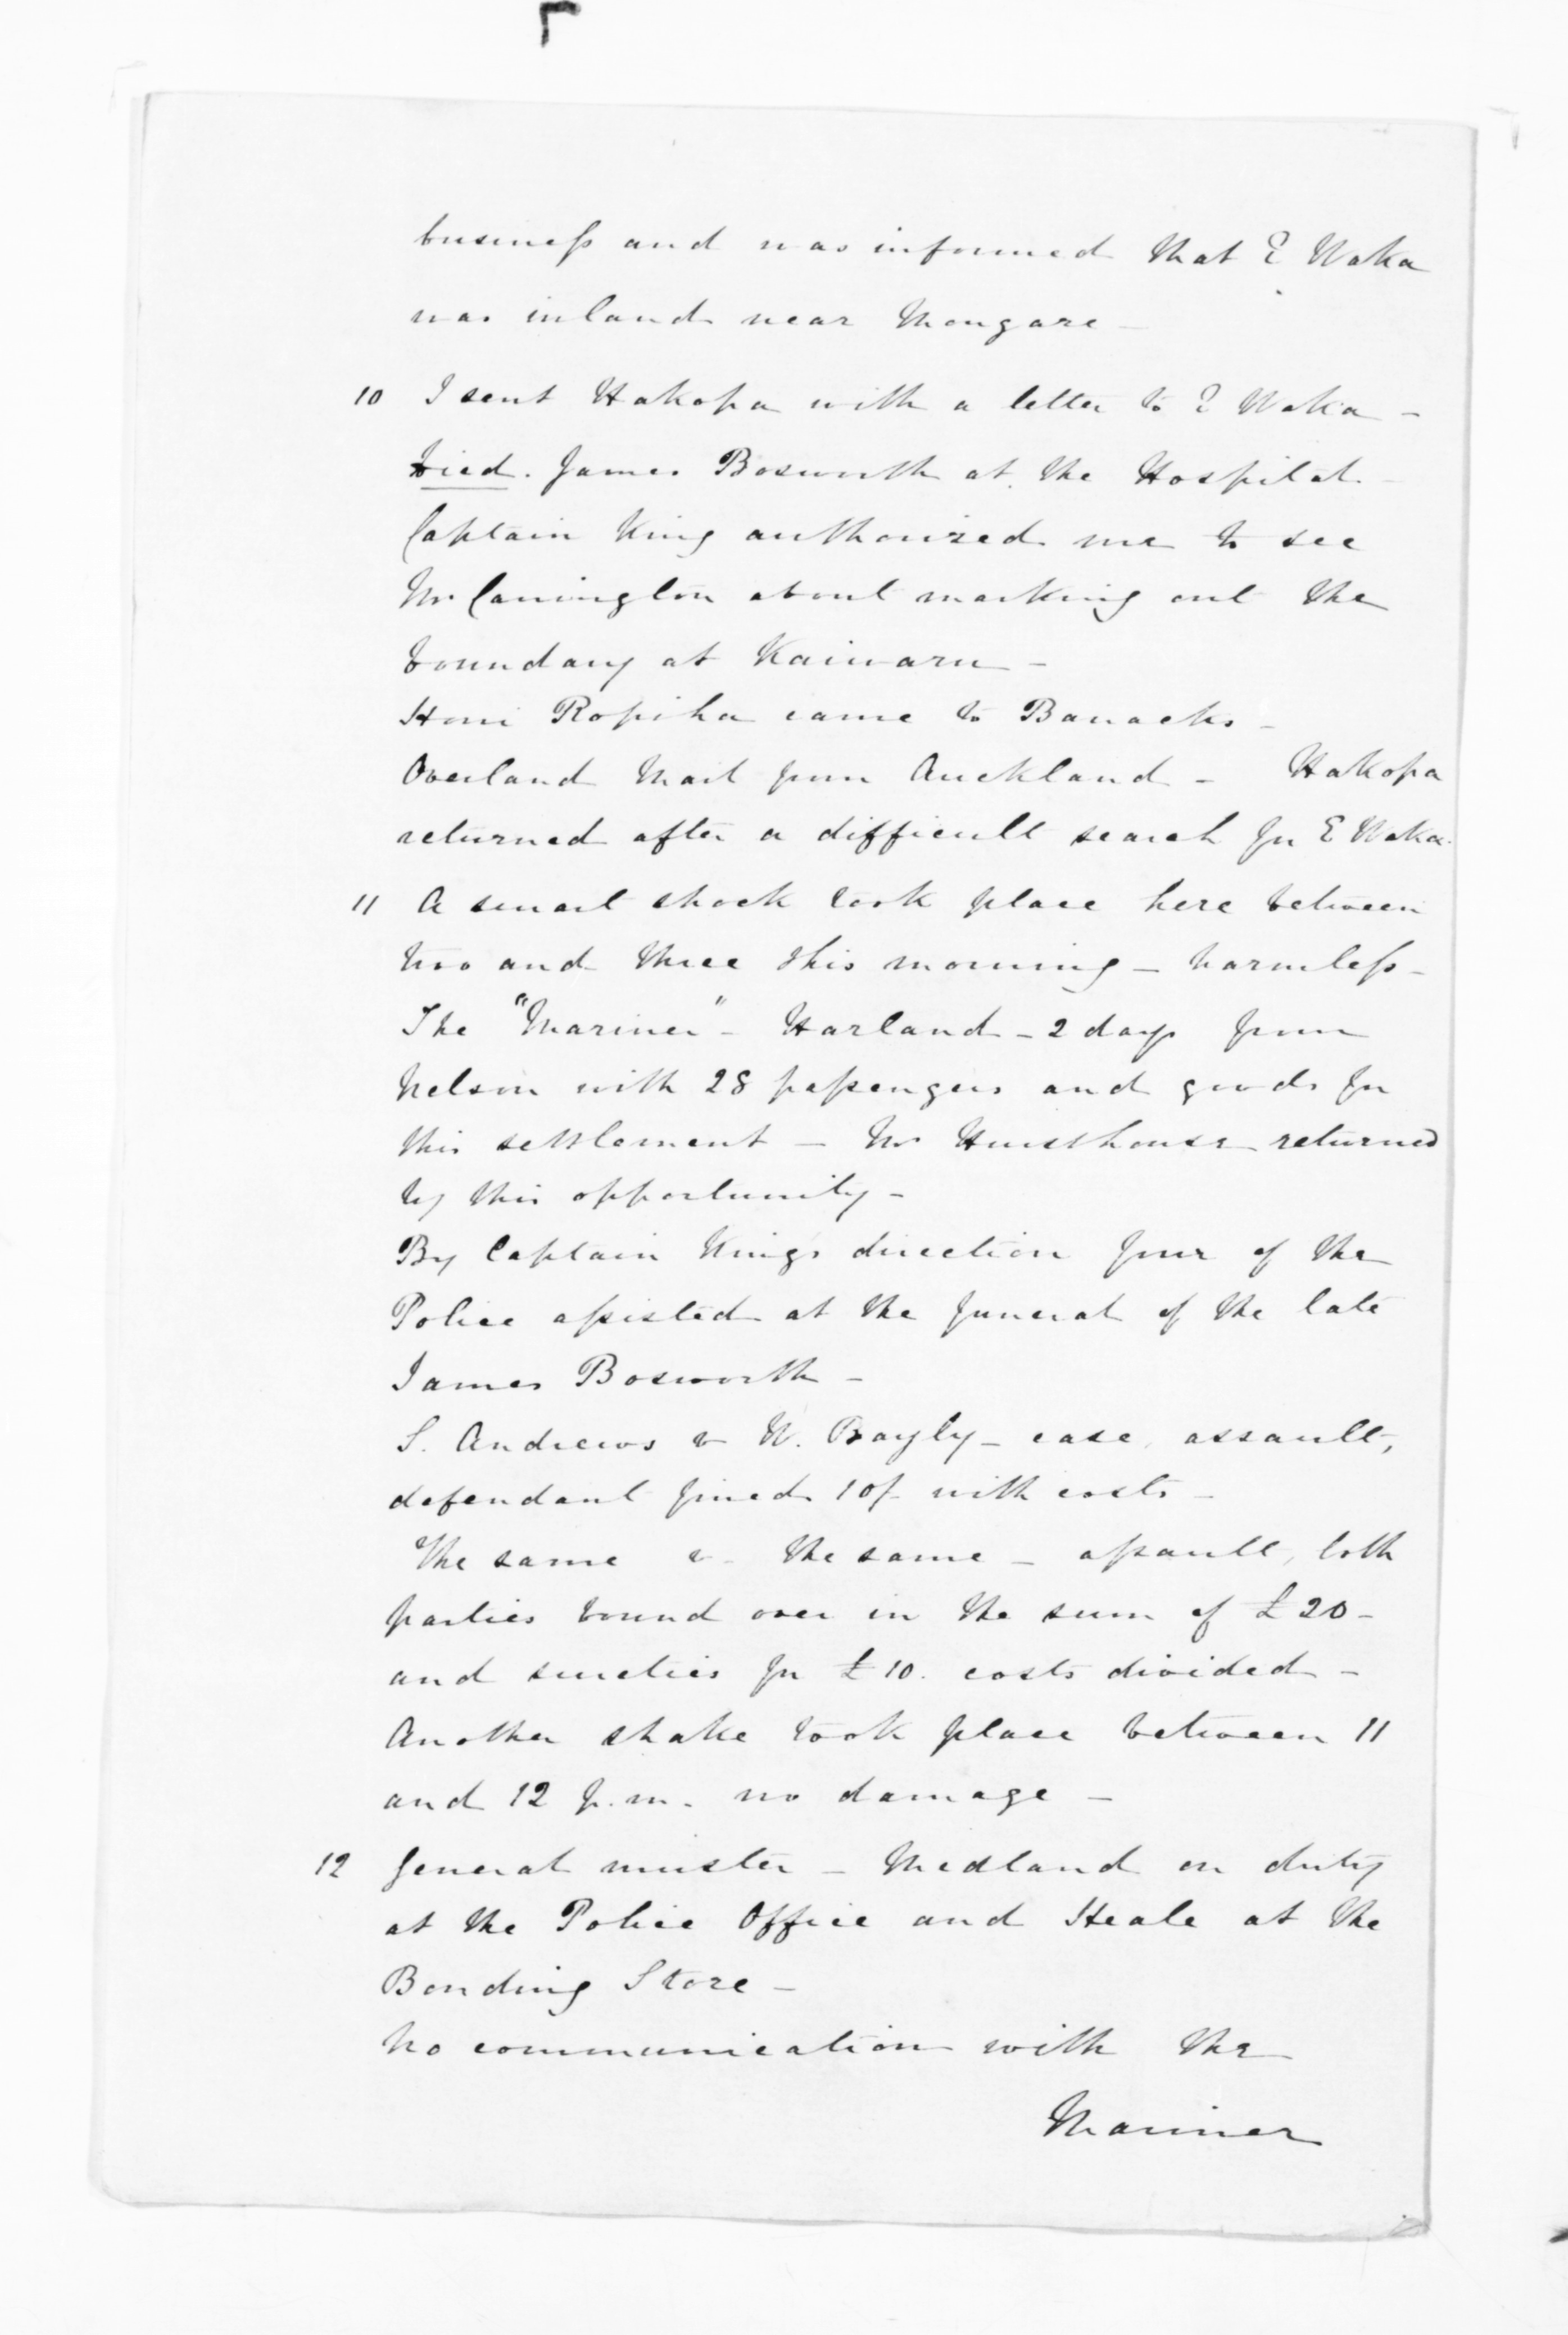 business and was informed that E Waka
was inland near Mongare –
10 I sent Hakopa with a letter to E Waka –
Died. James Bosworth at the Hospital –
Captain King authorized me to see
Mr Carrington about marking out the
boundary at Kaiwaru –
Honi Ropiha came to Barracks –
Overland Mail from Auckland – Hakopa
returned after a difficult search for E Waka.
11 A smart shock took place here between
two and three this morning – harmless –
The "Mariner" – Harland – 2 days from
Nelson with 28 passengers and goods for
this settlement – Mr Hursthouse returned
by this opportunity –
By Captain King's direction four of the
Police assisted at the funeral of the late
James Bosworth –
S. Andrews v W. Bayly – case, assault,
defendant fined 10/- with costs –
The same v. the same – assault, both
parties bound over in the sum of £20 –
and sureties for £10. costs divided –
Another shake took place between 11
and 12 p.m. no damage –
12 General muster – Medland on duty
at the Police Office and Heale at the
Bonding Store –
No communication with the
Mariner